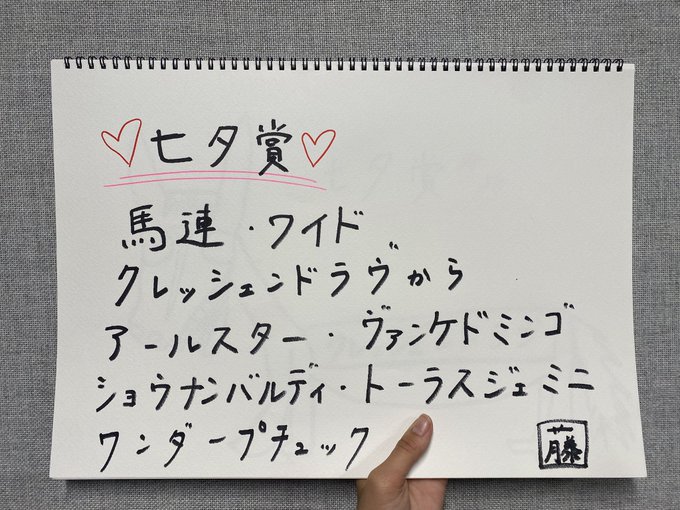 ♡七夕賞♡
馬連・ワイド
クレッシェンドラヴから
アールスター・ヴァンケドミンゴ
ショウナンバルディ・トーラスジェミニ
ワンダープチュック
藤